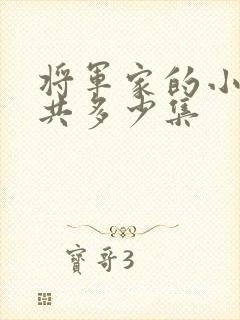 将军家的小
共多少集
寶哥3